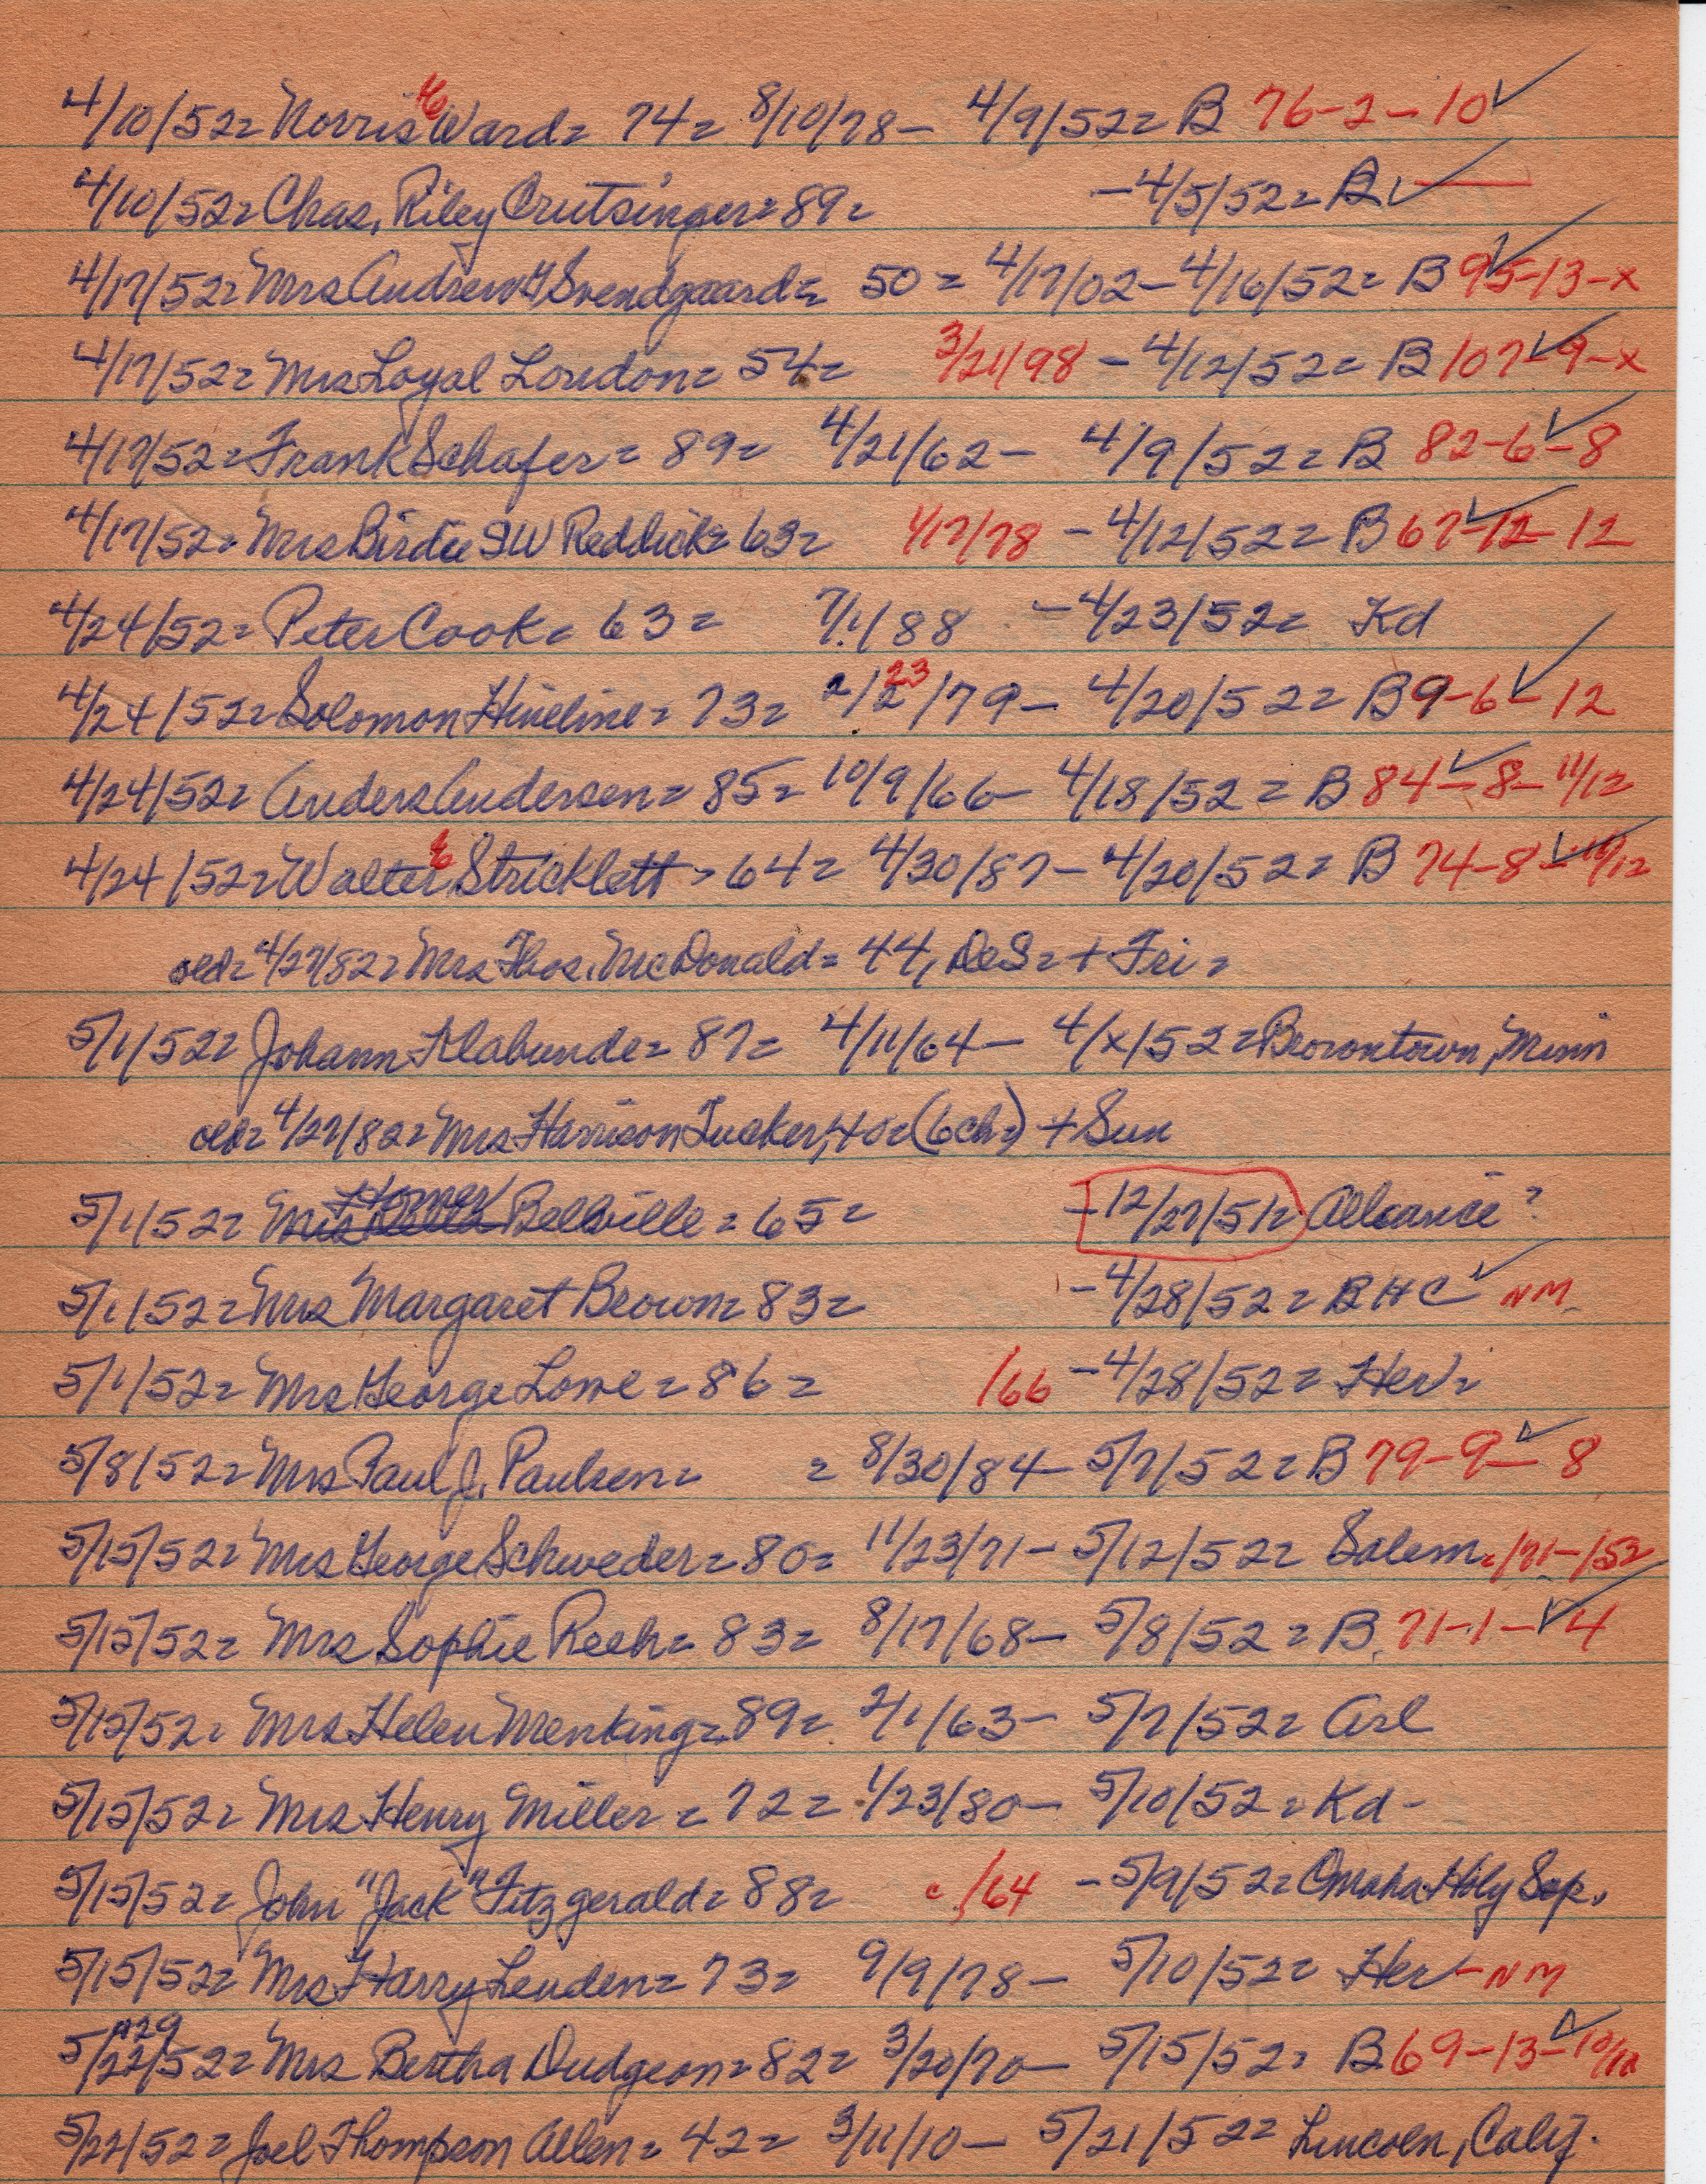 4/10/52= Norris W Ward= 74= 8/10/78- 4/9/52= B 76-2-10 ✓
4/10/52= Chas. Riley Crutsinger= 89= -4/5/52= B ✓ —
4/17/52= Mrs Andrew G Svendgaard= 50= 4/17/02-4/16/52= B 95-13-x ✓
4/17/52= Mrs Loyal London= 54= 3/21/98 -4/12/52= B 107-9-x ✓
4/17/52= Frank Schafer= 89= 4/21/62- 4/9/52= B 82-6-8 ✓
4/17/52= Mrs Birdie IW Reddick= 63= 1/17/78 -4/12/52= B 67-12-12 ✓
4/24/52= Peter Cook= 63= 7/1/88 -4/23/52= Kd
4/24/52= Solomon Hineline= 73= 2/2 23/79- 4/20/52= B 9-6-12 ✓
4/24/52= Anders Andersen= 85= 10/9/66- 4/18/52= B 84-8-11/12 ✓
4/24/52= Walter E Stricklett= 64= 4/30/87- 4/20/52= B 74-8-10/12 ✓
old= 4/27/82= Mrs Thos. McDonald= 44, DeS= + Fri=
5/1/52= Johann Klabunde= 87= 4/11/64- 4/x/52= Browntown, Minn
old= 4/27/82= Mrs Harrison Tucker, 40= (6ch=) + Sun
5/1/52= Homer Bellville= 65= -12/27/51= Alliance ?
5/1/52= Mrs Margaret Brown= 83= -4/28/52= BHC ✓ NM
5/1/52= Mrs George Lowe= 86= /66 -4/28/52= Her=
5/8/52= Mrs Paul J. Paulsen= = 8/30/84- 5/7/52= B 79-9-8 ✓
5/15/52= Mrs George Schweder= 80= 11/23/71- 5/12/52= Salem= /71-/52
5/15/52= Mrs Sophie Reeh= 83= 8/17/68- 5/8/52= B. 71-1-4 ✓
5/15/52= Mrs Helen Menking= 89= 2/1/63- 5/7/52= Arl
5/15/52= Mrs Henry Miller= 72= 1/23/80- 5/10/52= Kd-
5/15/52= John "Jack" Fitzgerald= 88= c/64 -5/9/52= Omaha Holy Sep.
5/15/52= Mrs Harry Leuden= 73= 9/9/78- 5/10/52= Her -NM
5/22/52= +29 Mrs Bertha Dudgeon= 82= 3/20/70- 5/15/52= B 69-13-10/12 ✓
5/22/52= Joel Thompson Allen= 42= 3/11/10- 5/21/52= Lincoln, Calif.